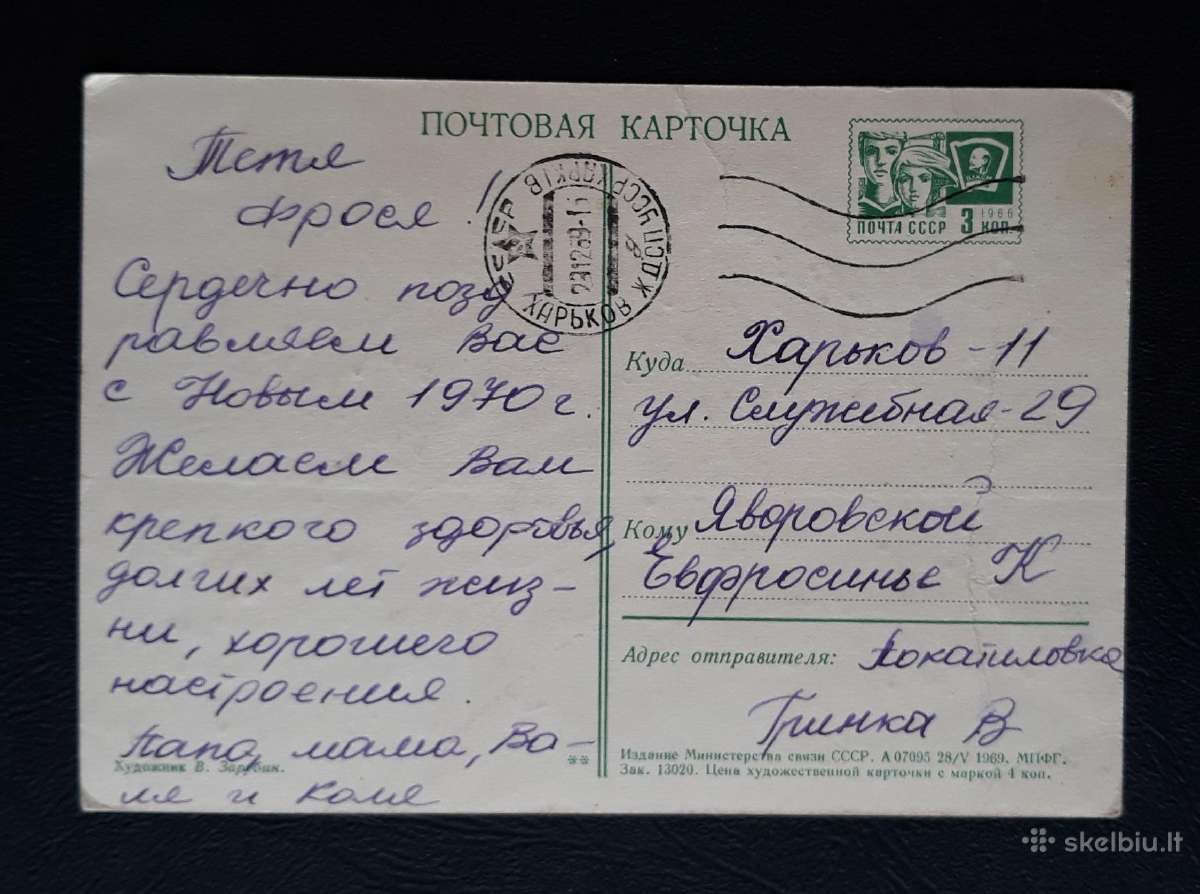 ПОЧТОВАЯ КАРТОЧКА
Тетя
Фрося!
Сердечно позд
равляем Вас
с Новым 1970 г.
Желаем Вам
крепкого здоровья,
долгих лет жиз-
ни, хорошего
настроения.
Папа, мама, Ва-
ля и Коля
Художник В. Зарубин.
ХАРЬКОВ ЖДСП ЦССР ХАРКІВ
СССР
29 12 69-1
ПОЧТА СССР 3 КОП.
1966
Куда Харьков-11
ул. Служебная-29
Кому Яворовской
Евфросинье К
Адрес отправителя: Покатиловка
Гринка В
Издание Министерства связи СССР. А 07095 28/V 1969. МПФГ.
Зак. 13020. Цена художественной карточки с маркой 4 коп.
skelbiu.lt